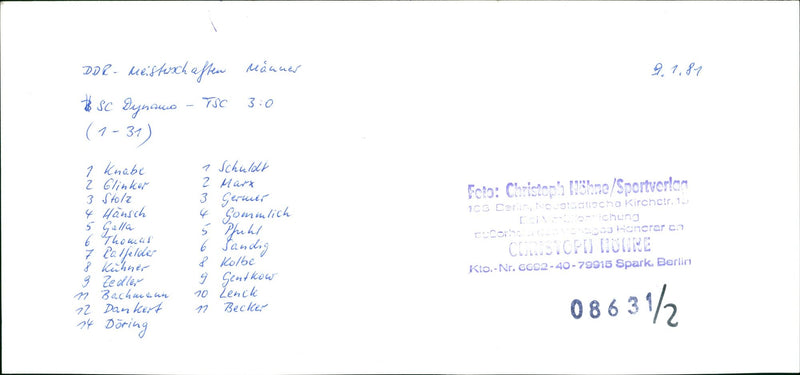 DDR - Meisterschaften Männer
9.1.81
SC Dynamo - TSC 3:0
(1-31)
1 Knabe
2 Glinker
3 Stolz
4 Hänsch
5 Galla
6 Thomas
7 Ratfelder
8 Kühner
9 Zedler
11 Bachmann
12 Dankert
14 Döring
1 Schuldt
2 Marx
3 Germer
4 Gommlich
5 Pfuhl
6 Sandig
8 Kolbe
9 Gentkow
10 Lenck
11 Becker
Foto: Christoph Höhne/Sportverlag
108 Berlin, Neustädtische Kirchstr.
Bei Veröffentlichung
Honorar an
CHRISTOPH HÖHNE
Kto.-Nr. 6692-40-79915 Spark. Berlin
08631/2